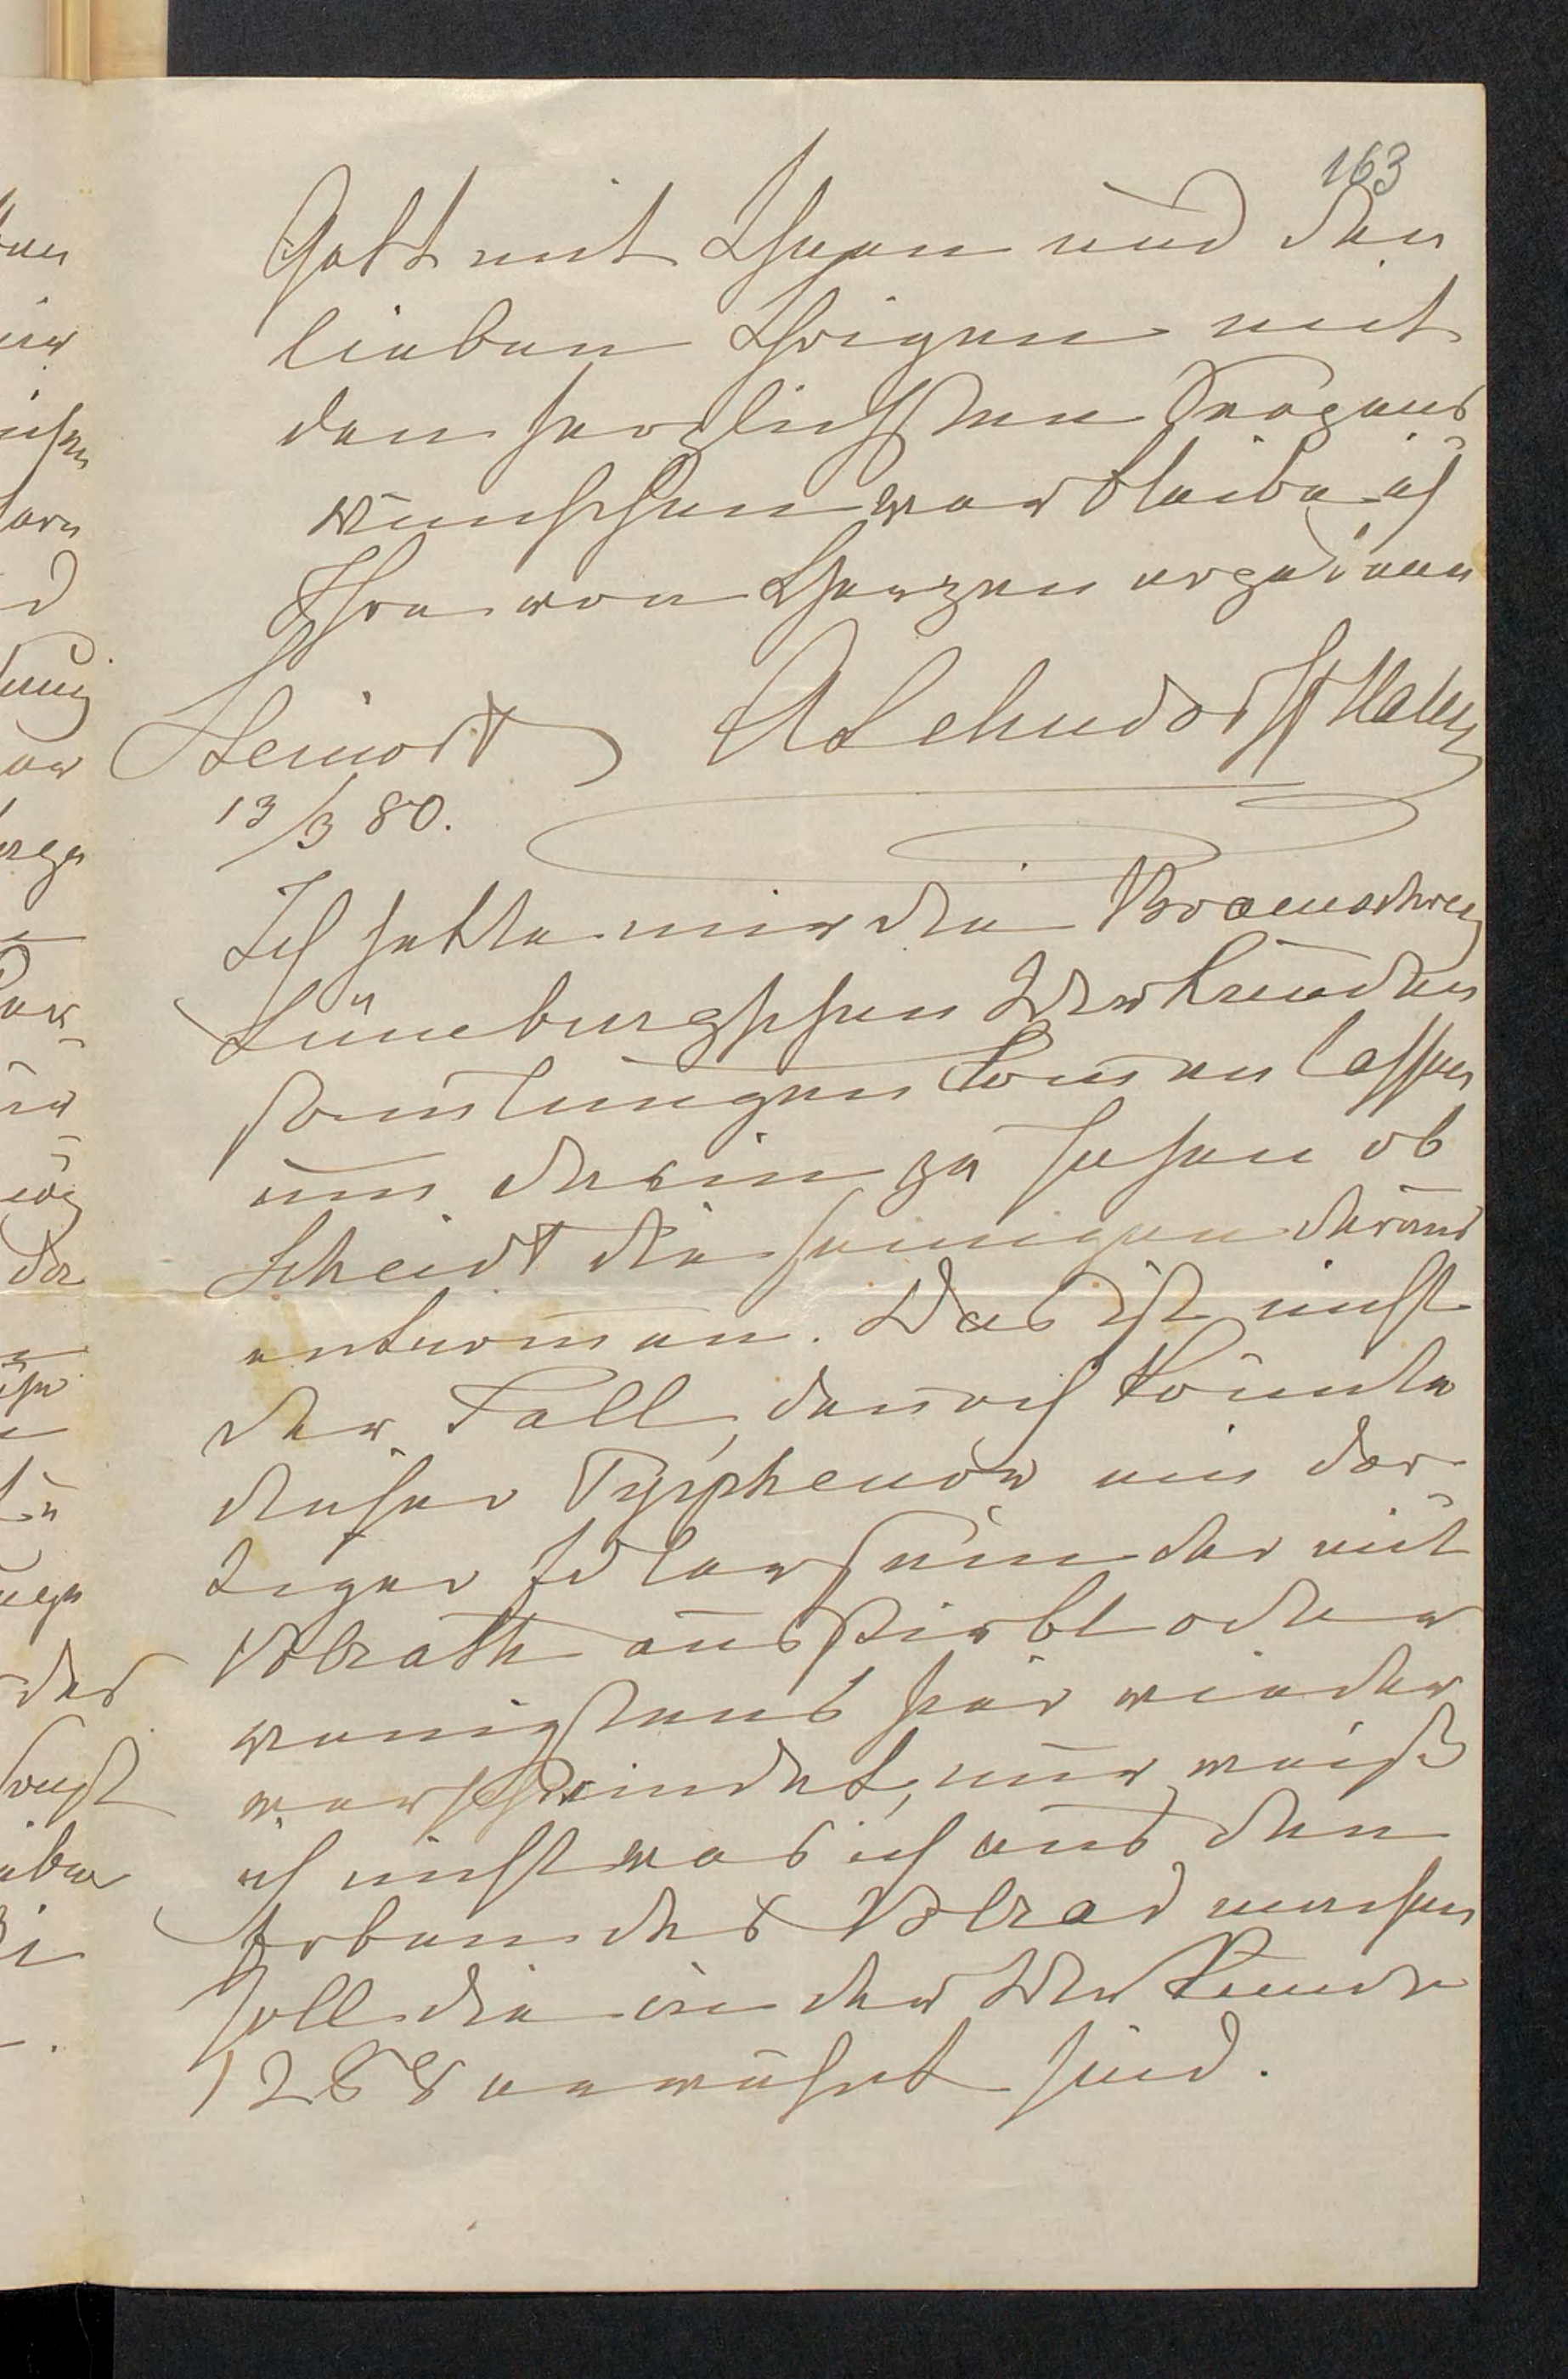 163
Gott mit Ihnen und den
lieben Ihrigen mit
den herzlichsten Segens
wünschen verbleibe ich
Ihre von Herzen ergebene
A Lehndorff Hahn
Steinort
13/3 80.
Ich hatte mir die Braunschweig
Lüneburgschen Urkunden
samlungen komen lassen
um darin zu sehen ob
Scheidt die seinigen daraus
entnomen. Das ist nicht
der Fall, denoch könnte
dieser Typphenow ein dor-
tiger Edler sein der mit
Volrath ausstirbt oder
wenigstens hier wieder
verschwindet, nur weiß
ich nicht was ich aus den
Erben des Volrad machen
soll die in der Urkunde
1268 erwähnt sind.